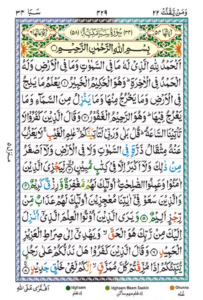 سَبَا ٣٤ ٤٢٩ وَمَنْ يَّقْنُتْ ٢٢
بِسْمِ اللّٰهِ الرَّحْمٰنِ الرَّحِيْمِ
اَلْحَمْدُ لِلّٰهِ الَّذِىْ لَهٗ مَا فِى السَّمٰوٰتِ وَمَا فِى الْاَرْضِ وَلَهُ
الْحَمْدُ فِى الْاٰخِرَةِ ؕ وَهُوَ الْحَكِيْمُ الْخَبِيْرُ يَعْلَمُ مَا يَلِجُ
فِى الْاَرْضِ وَمَا يَخْرُجُ مِنْهَا وَمَا يَنْزِلُ مِنَ السَّمَآءِ وَمَا
يَعْرُجُ فِيْهَا ؕ وَهُوَ الرَّحِيْمُ الْغَفُوْرُ وَقَالَ الَّذِيْنَ كَفَرُوْا لَا
تَاْتِيْنَا السَّاعَةُ ؕ قُلْ بَلٰى وَرَبِّىْ لَتَاْتِيَنَّكُمْ ۙ عٰلِمِ الْغَيْبِ ۚ لَا يَعْزُبُ
عَنْهُ مِثْقَالُ ذَرَّةٍ فِى السَّمٰوٰتِ وَلَا فِى الْاَرْضِ وَلَاۤ اَصْغَرُ
مِنْ ذٰلِكَ وَلَاۤ اَكْبَرُ اِلَّا فِىْ كِتٰبٍ مُّبِيْنٍ لِّيَجْزِىَ الَّذِيْنَ
اٰمَنُوْا وَعَمِلُوا الصّٰلِحٰتِ ؕ اُولٰٓئِكَ لَهُمْ مَّغْفِرَةٌ وَّرِزْقٌ كَرِيْمٌ
وَالَّذِيْنَ سَعَوْ فِىْۤ اٰيٰتِنَا مُعٰجِزِيْنَ اُولٰٓئِكَ لَهُمْ عَذَابٌ مِّنْ
رِّجْزٍ اَلِيْمٌ وَيَرَى الَّذِيْنَ اُوْتُوا الْعِلْمَ الَّذِىْۤ اُنْزِلَ
اِلَيْكَ مِنْ رَّبِّكَ هُوَ الْحَقَّ ۙ وَيَهْدِىْۤ اِلٰى صِرَاطِ الْعَزِيْزِ
الْحَمِيْدِ وَقَالَ الَّذِيْنَ كَفَرُوْا هَلْ نَدُلُّكُمْ عَلٰى رَجُلٍ
يُّنَبِّئُكُمْ اِذَا مُزِّقْتُمْ كُلَّ مُمَزَّقٍ ۙ اِنَّكُمْ لَفِىْ خَلْقٍ جَدِيْدٍ